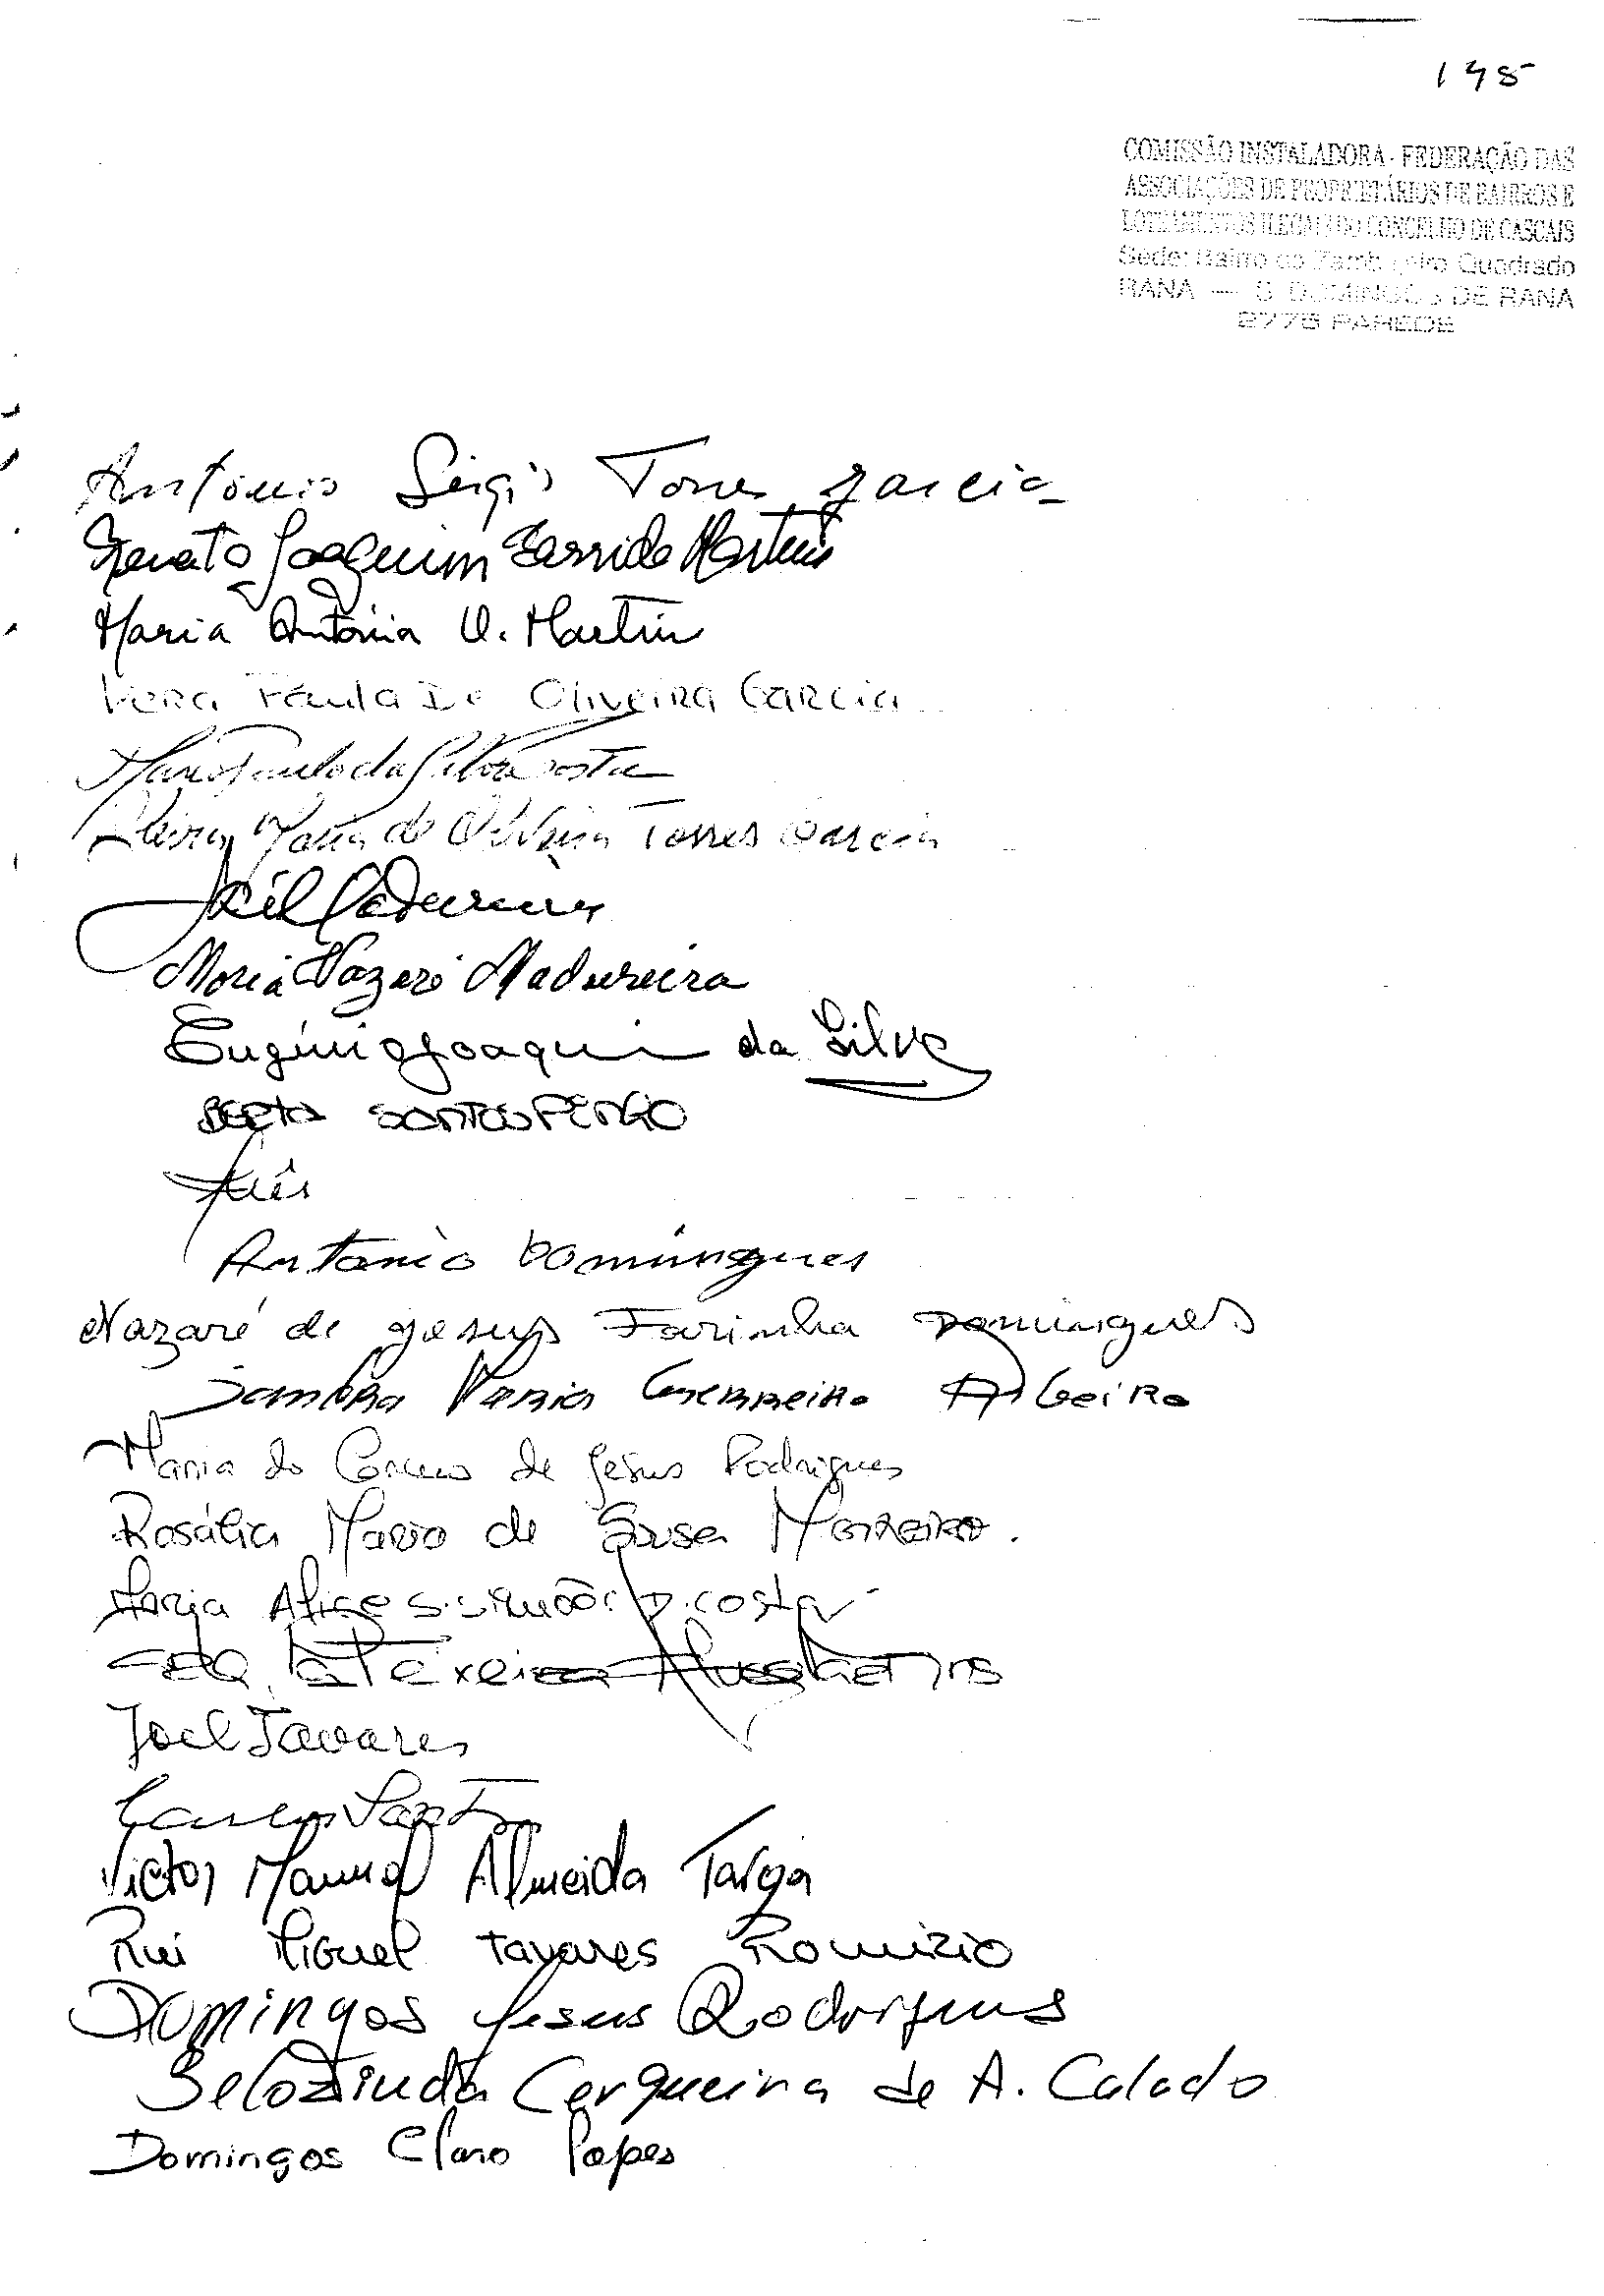 145
COMISSÃO INSTALADORA - FEDERAÇÃO DAS
ASSOCIAÇÕES DE PROPRIETÁRIOS DE BAIRROS E
LOTEAMENTOS ILEGAIS DO CONCELHO DE CASCAIS
Sede: Bairro do Zambujeiro Quadrado
RANA — S DOMINGOS DE RANA
2775 PAREDE
António Sérgio Torres Garcia
Renato Joaquim Garrido Martins
Maria Antónia V. Martins
Vera Paula De Oliveira Garcia
Paulo da Silva Costa
Maria de Oliveira Torres Garcia
Madureira
Maria Nazaré Madureira
Eugénio Joaquim da Silva
Berta Santos
Inês
Antonio Domingues
Nazaré de Jesus Farinha Domingues
Sandra Maria Guerreiro Ribeiro
Maria do Carmo de Jesus Rodrigues
Rosália Maria de Sousa
Maria Alice S. Simões D. Costa
Teixeira
Joel Tavares
Carlos Santos
Victor Manuel Almeida Targa
Rui Miguel Tavares Romizio
Domingos Jesus Rodrigues
Cerqueira de A. Calado
Domingos Claro Lopes